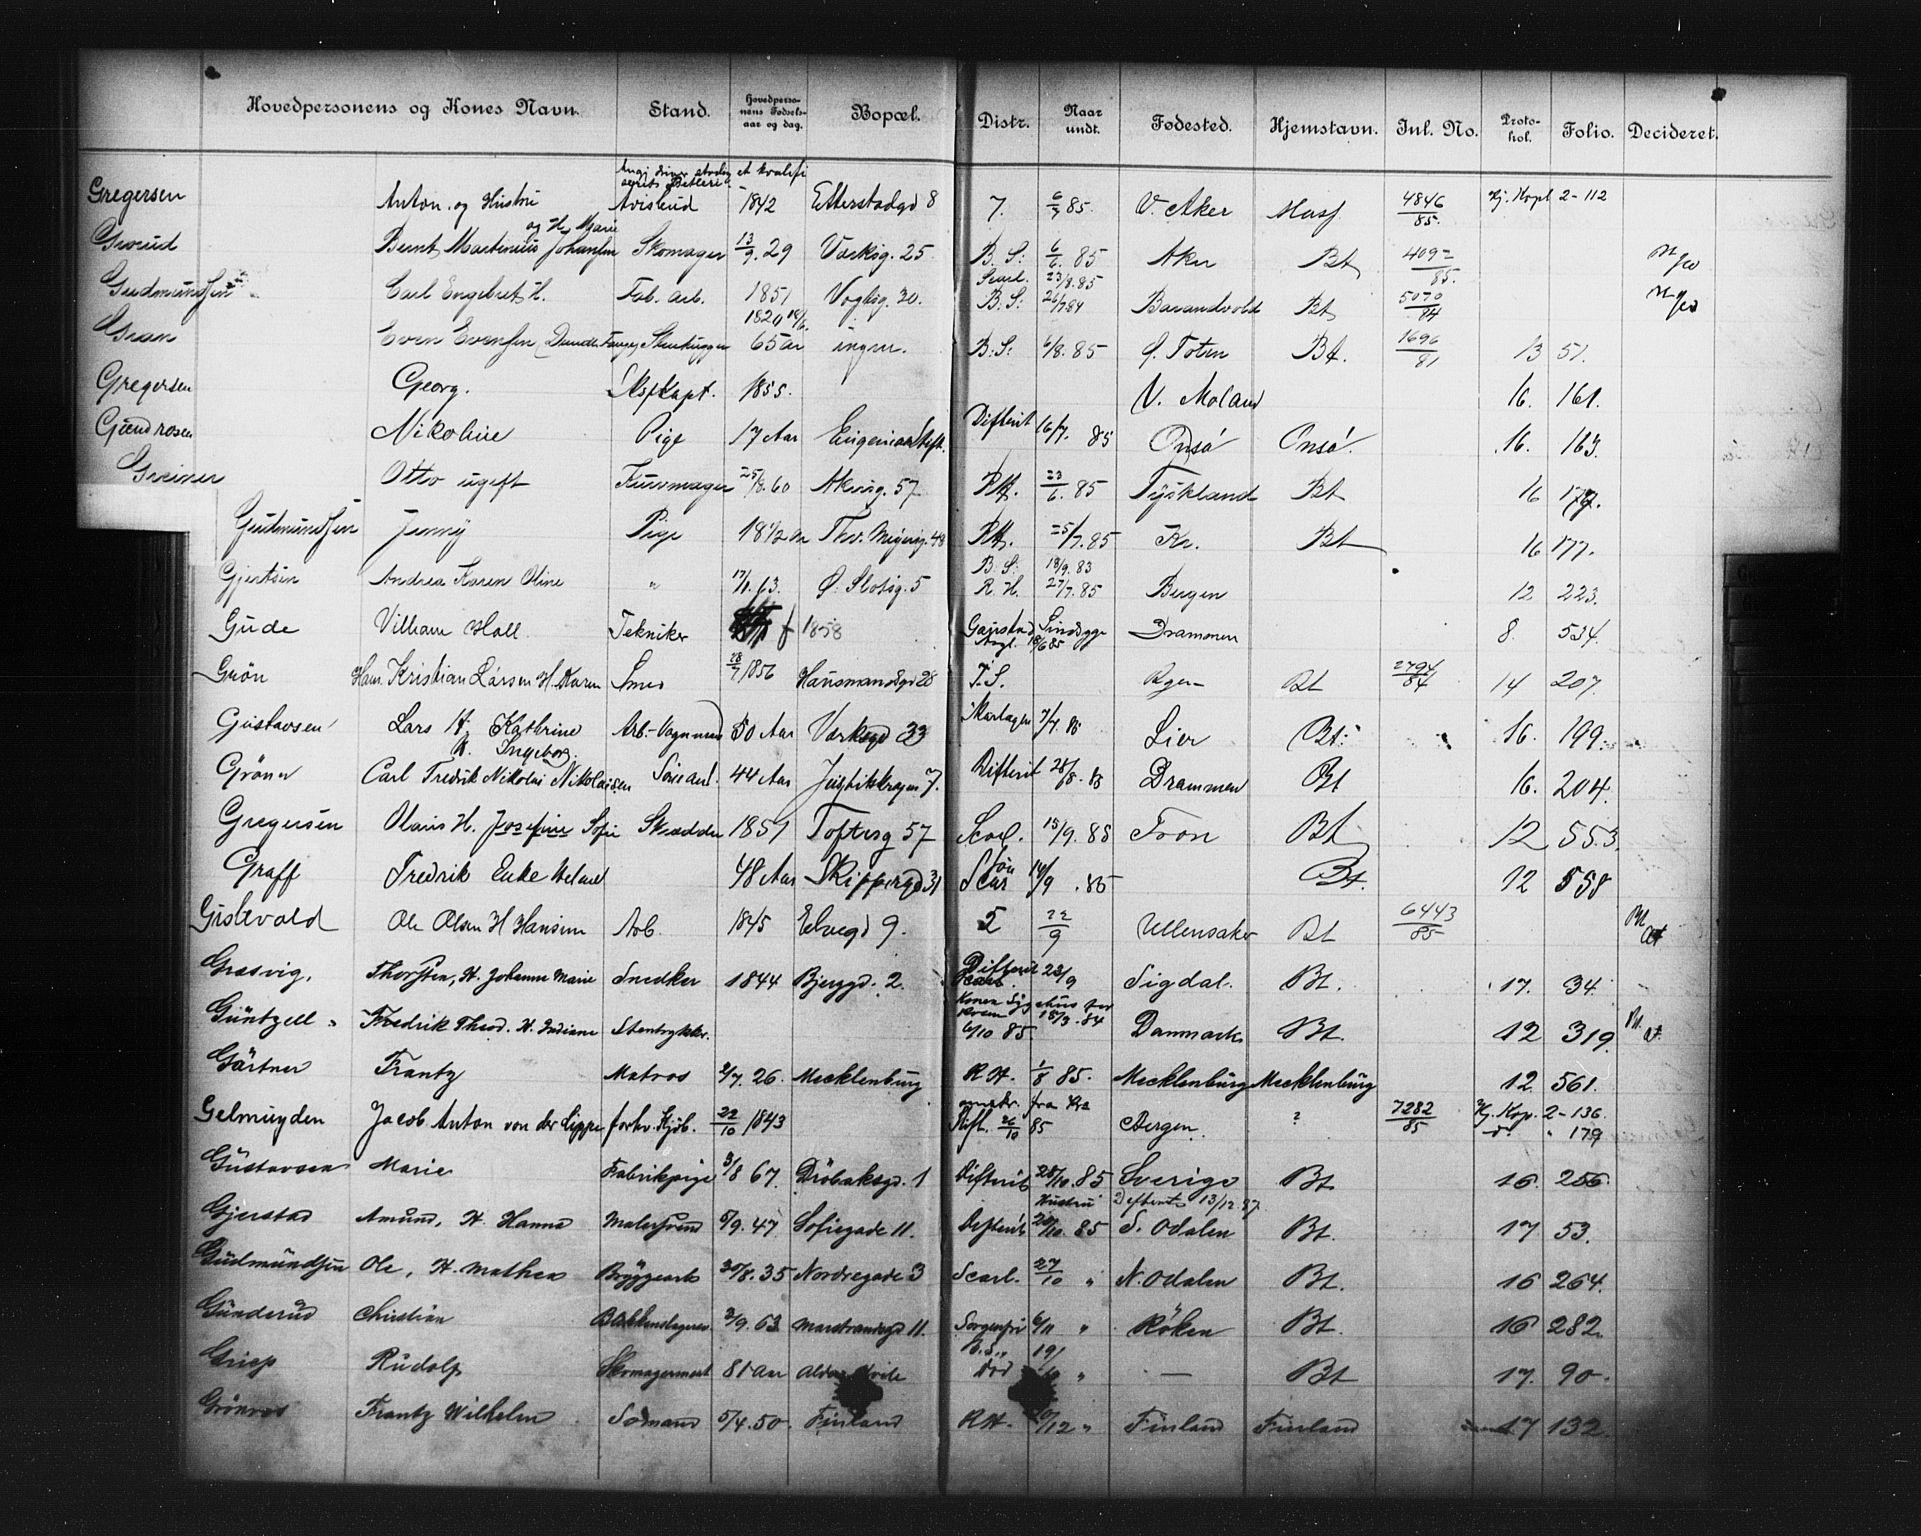 Hovedpersonens og Kones Navn. Stand. Hovedpersonens Fødselsaar og dag. Bopæl. Distr. Naar undt. Fødested. Hjemstavn. Inl. No. Protokol. Folio. Decideret.
Gregersen Anton og Hustru Avisbud 1842 Etterstadgd 8 7. 6/7 85. V. Aker 4846/85. Kop 2-112
og H. Marie
Grorud Bernt Martinius Johansen Skomager 13/9. 29 Værksg. 25 B. S: 6/6. 85 Aker Bt 4092/85.
Scarl. 23/8.85
Gudmundsen Carl Engebret H. Fab. arb. 1851 Vogtsg. 30. B. S: 26/7 84 Bt 5070/84
1820 18/6.
Gran Even Evensen Stenhugger 65 aar ingen. B. S: 6/8. 85 Ø. Toten Bt. 1696/81 13 51.
Gregersen Georg. Skfkapt. 1855. V. Moland 16. 161.
Gundrosen Nikoline Pige 17 Aar Eugenias Stift. Difterit 16/7. 85 Onsø Onsø. 16. 163.
Greiner Otto ugift Kurvmager 25/8. 60 Akersg. 57 RH. 23/6. 85 Tyskland Bt 16 177.
Gudmundsen Jenny Pige 18 1/2 aar Thv. Meyersg. 48 RH. 25/7. 85 Kr. Bt 16 177.
B. S: 18/9. 83
Gjertsen Andrea Karen Oline " 17/1. 63. Ø. Slotsg. 5 R. H. 27/7. 85 Bergen 12 223.
Gude Villiam Holl Tekniker 1858 Gaustad Sindsyge Drammen 8. 534.
Asyl. 18/6 85
Grön Hans Kristian Larsen H. Karen Smed 28/7 1856 Hausmandsgd 28 T. S. Bt 2794/84 14 207
Gustavsen Lars H. Kathrine Arb.-Vognmand 50 Aar Værksgd 33 7/7. 85 Lier Bt. 16. 199.
H. Ingeborg
Grönn Carl Fredrik Nikolai Nikolaisen 44 Aar 7. Difterit 28/8. 85 Drammen Bt 16. 204.
Gregersen Olaus H. Josefine Sofie Skrædder 1851 Toftesg 57 Scarl. 15/9. 85 Tron Bt 12 553.
Graff Fredrik Enkemand 48 Aar Skippergd 31 Scar 14/9 . 85 Bt. 12 558
Gislevold Ole Olsen H Hansine Arb. 1845 Elvegd 9. 5 22/9 Ullensaker Bt 6443/85
Græsvig, Thorsten, H. Johanne Marie Snedker 1844 Bjerggd. 2. Difterit 23/9 Sigdal. Bt. 17. 34.
Scarl.
Konen Sygehus
18/3. 84
Güntzell Fredrik Theod. H. Indiane Stentrykker. 6/10 85. Danmark Bt. 12 319.
Gärtner Frantz Matros 2/7. 26. Mecklenburg RH. 1/8 85. Mecklenburg Mecklenburg 12 561.
fra Kra
Gelmuyden Jacob Anton von der Lippe forhv. Kjøb. 22/10 1843 26/10 85 Bergen. ? 7282/85 Kop. 2-136.
do " 179
Gustavsen Marie Fabrikpige 3/8 67. Dröbaksgd. 1 Difterit 28/10. 85 Sverige Bt 16. 256
Hustru Difterit 13/12.87.
Gjerstad Amund, H. Hanna Malersvend 5/9. 47. Sofiegade 11. Difterit 28/10. 85 S. Odalen Bt. 17 53.
Gudmundsen Ole, H. Mathea Bryggearb 30/8. 35 Nordregade 3 Scarl. 27/10 " N. Odalen Bt. 16 264.
Gunderud Christian Blikkenslager. 2/9. 63 Marstrandsgd 11. Sorgenfri 6/11 " Røken Bt. 16 282.
B. S.. 19/
Griep Rudolf Skomagermest 81 aar Død " — Bt 17. 90.
Grönroos Frantz Wilhelm Sömand 5/4. 50. Finland RH. 10/12 " Finland Finland 17 132.